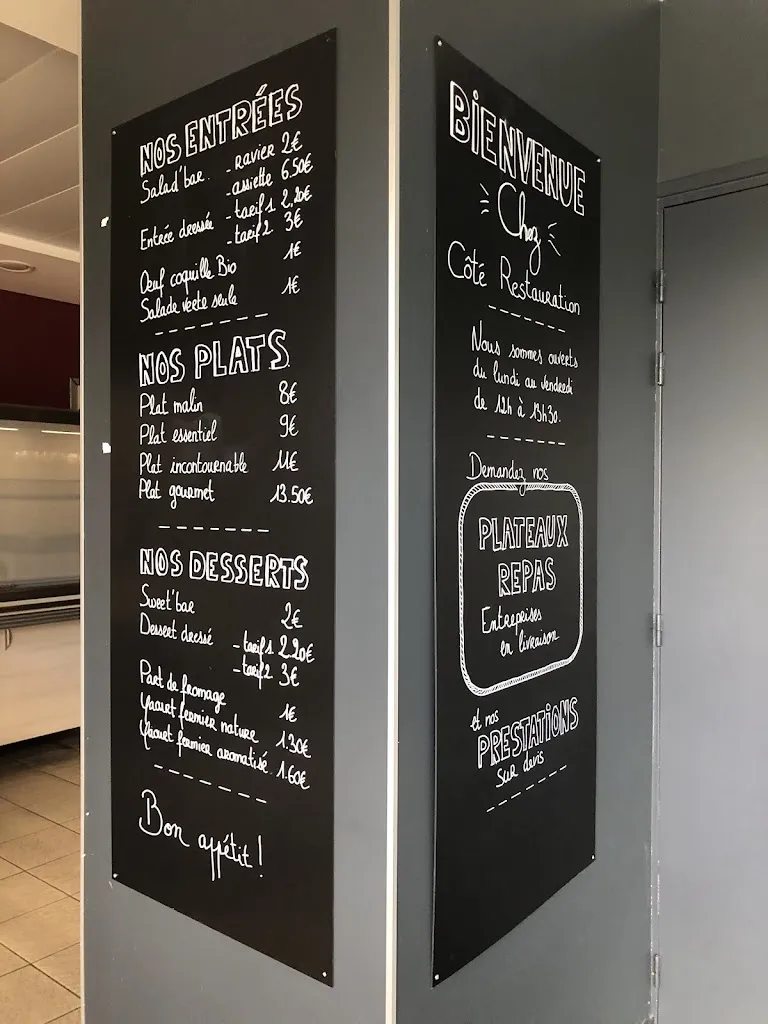 NOS ENTRÉES
Salad'bar - ravier 2€
- assiette 6.50€
Entrée dressée - tarif 1 2,20€
- tarif 2 3€
Œuf coquille Bio 1€
Salade verte seule 1€
NOS PLATS
Plat malin 8€
Plat essentiel 9€
Plat incontournable 11€
Plat gourmet 13.50€
NOS DESSERTS
Sweet'bar 2€
Dessert dressé - tarif 1 2.20€
- tarif 2 3€
Part de fromage 1€
Yaourt fermier nature 1.30€
Yaourt fermier aromatisé 1.60€
Bon appétit!
BIENVENUE
Chez
Côté Restauration
Nous sommes ouverts
du lundi au vendredi
de 12h à 13h30.
Demandez nos
PLATEAUX
REPAS
Entreprises
en livraison
et nos
PRESTATIONS
sur devis